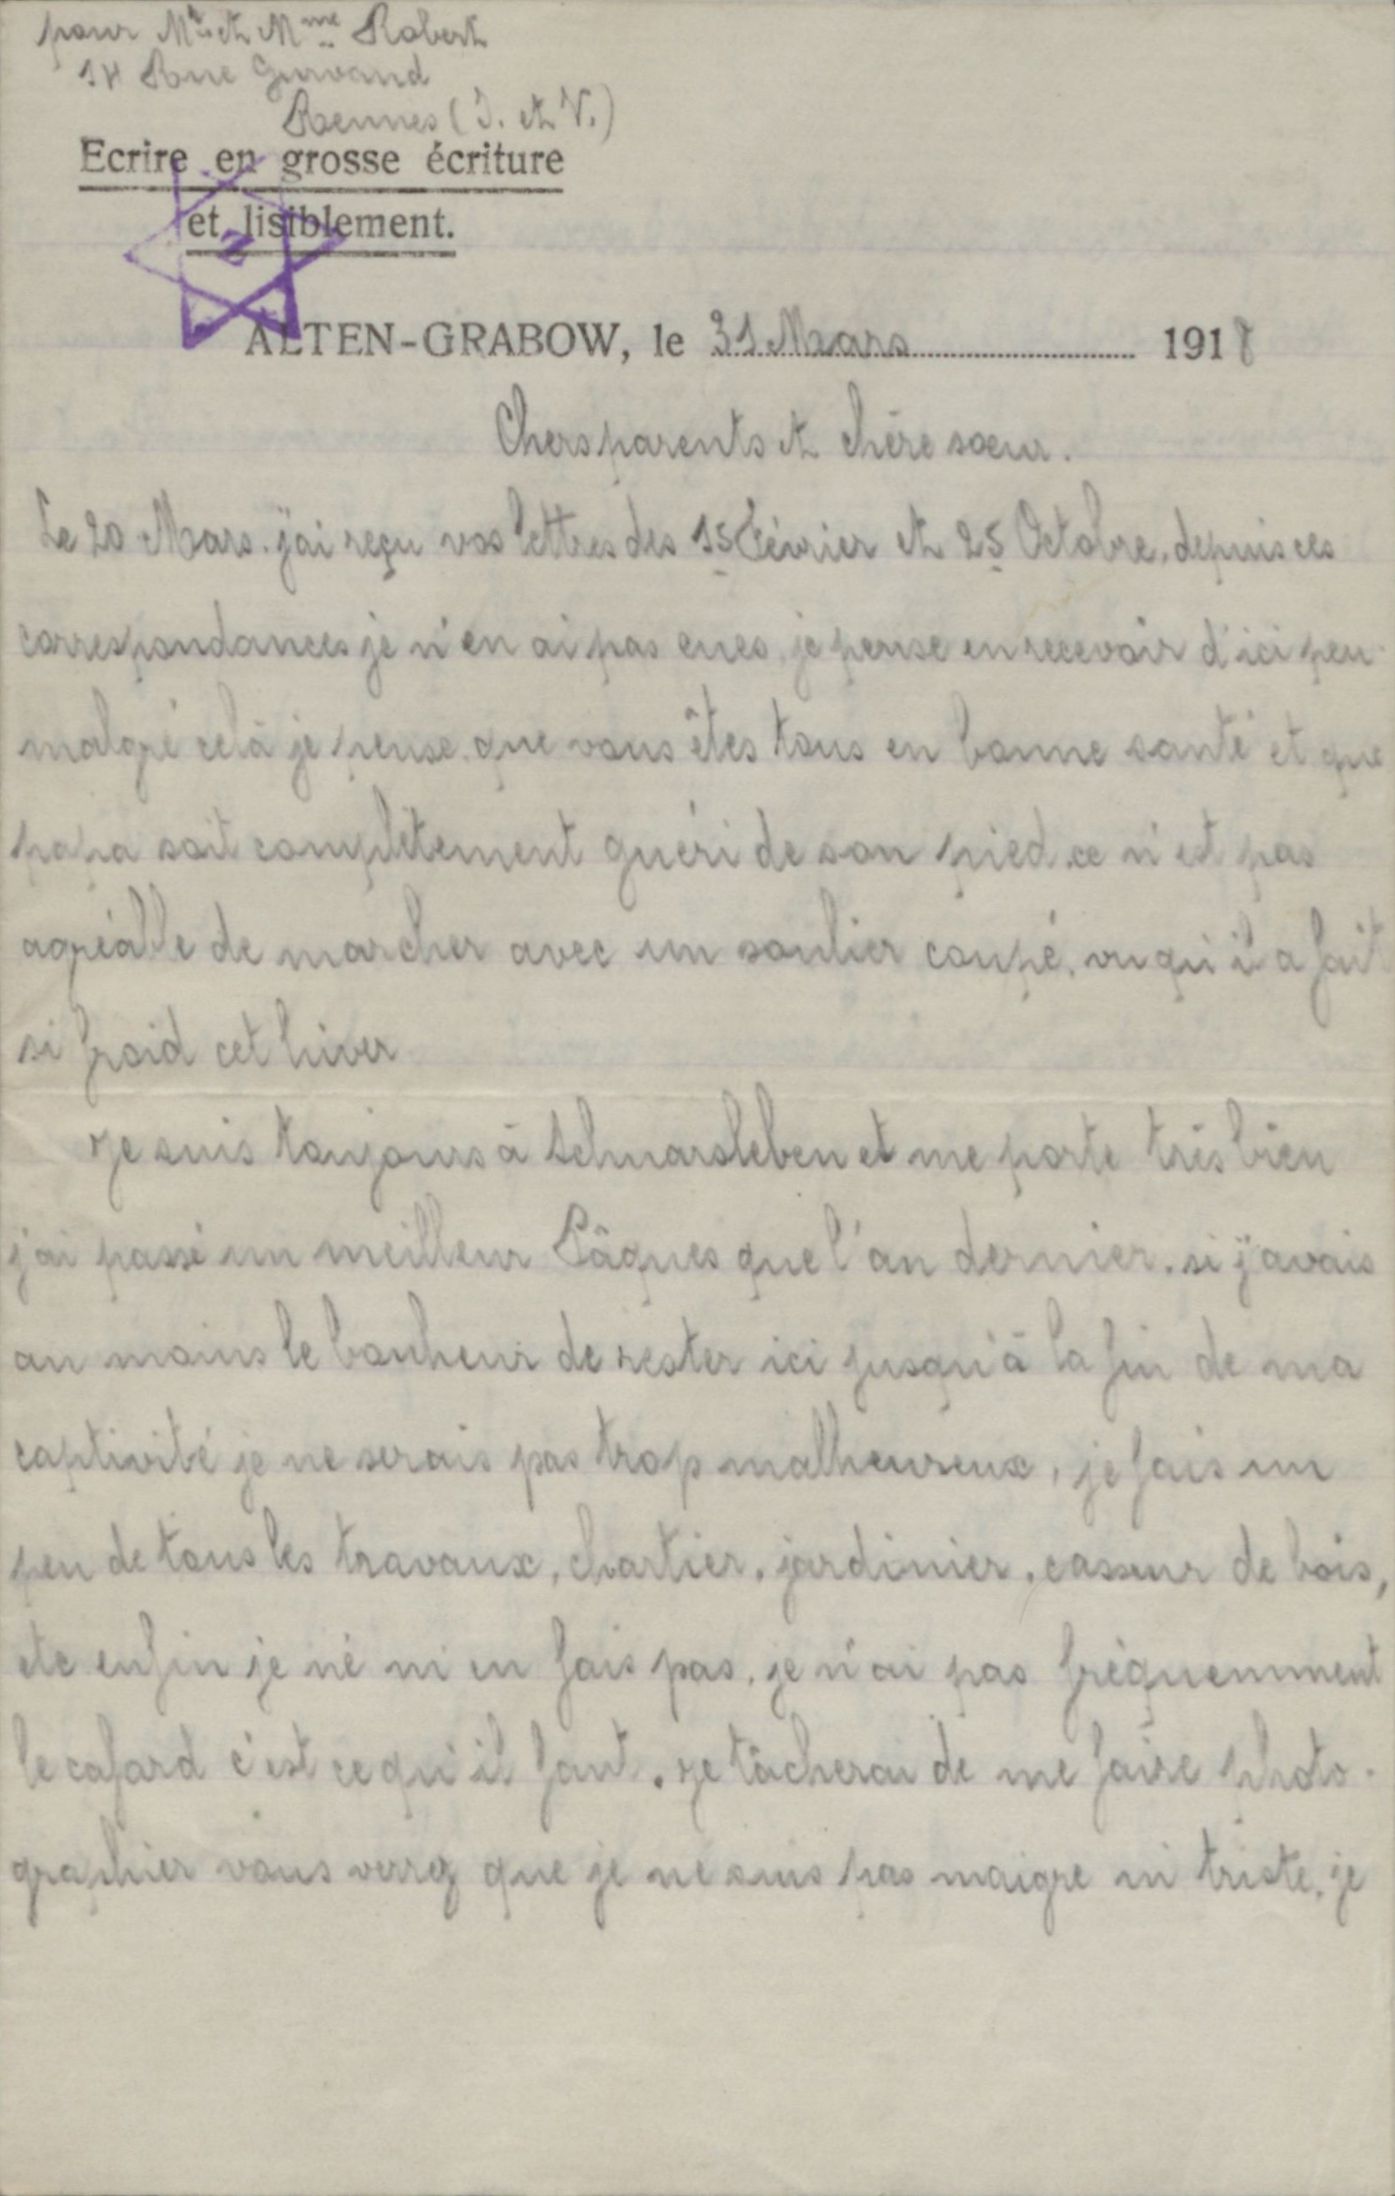 pour Mr et Mme Robert
14 Rue Gurvand
Rennes (I. et V.)
Ecrire en grosse écriture
et lisiblement.
ALTEN-GRABOW, le 31 Mars 1918
Chers parents et chère sœur.
Le 20 Mars. j'ai reçu vos lettres des 15 Février et 25 Octobre, depuis ces
correspondances je n'en ai pas eues, je pense en recevoir d'ici peu
malgré celà je pense que vous êtes tous en bonne santé et que
papa soit complètement guéri de son pied. ce n'est pas
agréable de marcher avec un soulier coupé. vu qu'il a fait
si froid cet hiver
Je suis toujours à Schwarsleben et me porte très bien
j'ai passé un meilleur Pâques que l'an dernier. si j'avais
au moins le bonheur de rester ici jusqu'à la fin de ma
captivité je ne serais pas trop malheureux, je fais un
peu de tous les travaux, chartier, jardinier, casseur de bois,
etc enfin je né m'en fais pas. je n'ai pas fréquemment
le cafard c'est ce qu'il faut. Je tâcherai de me faire photo-
graphier vous verrez que je ne suis pas maigre ni triste. je